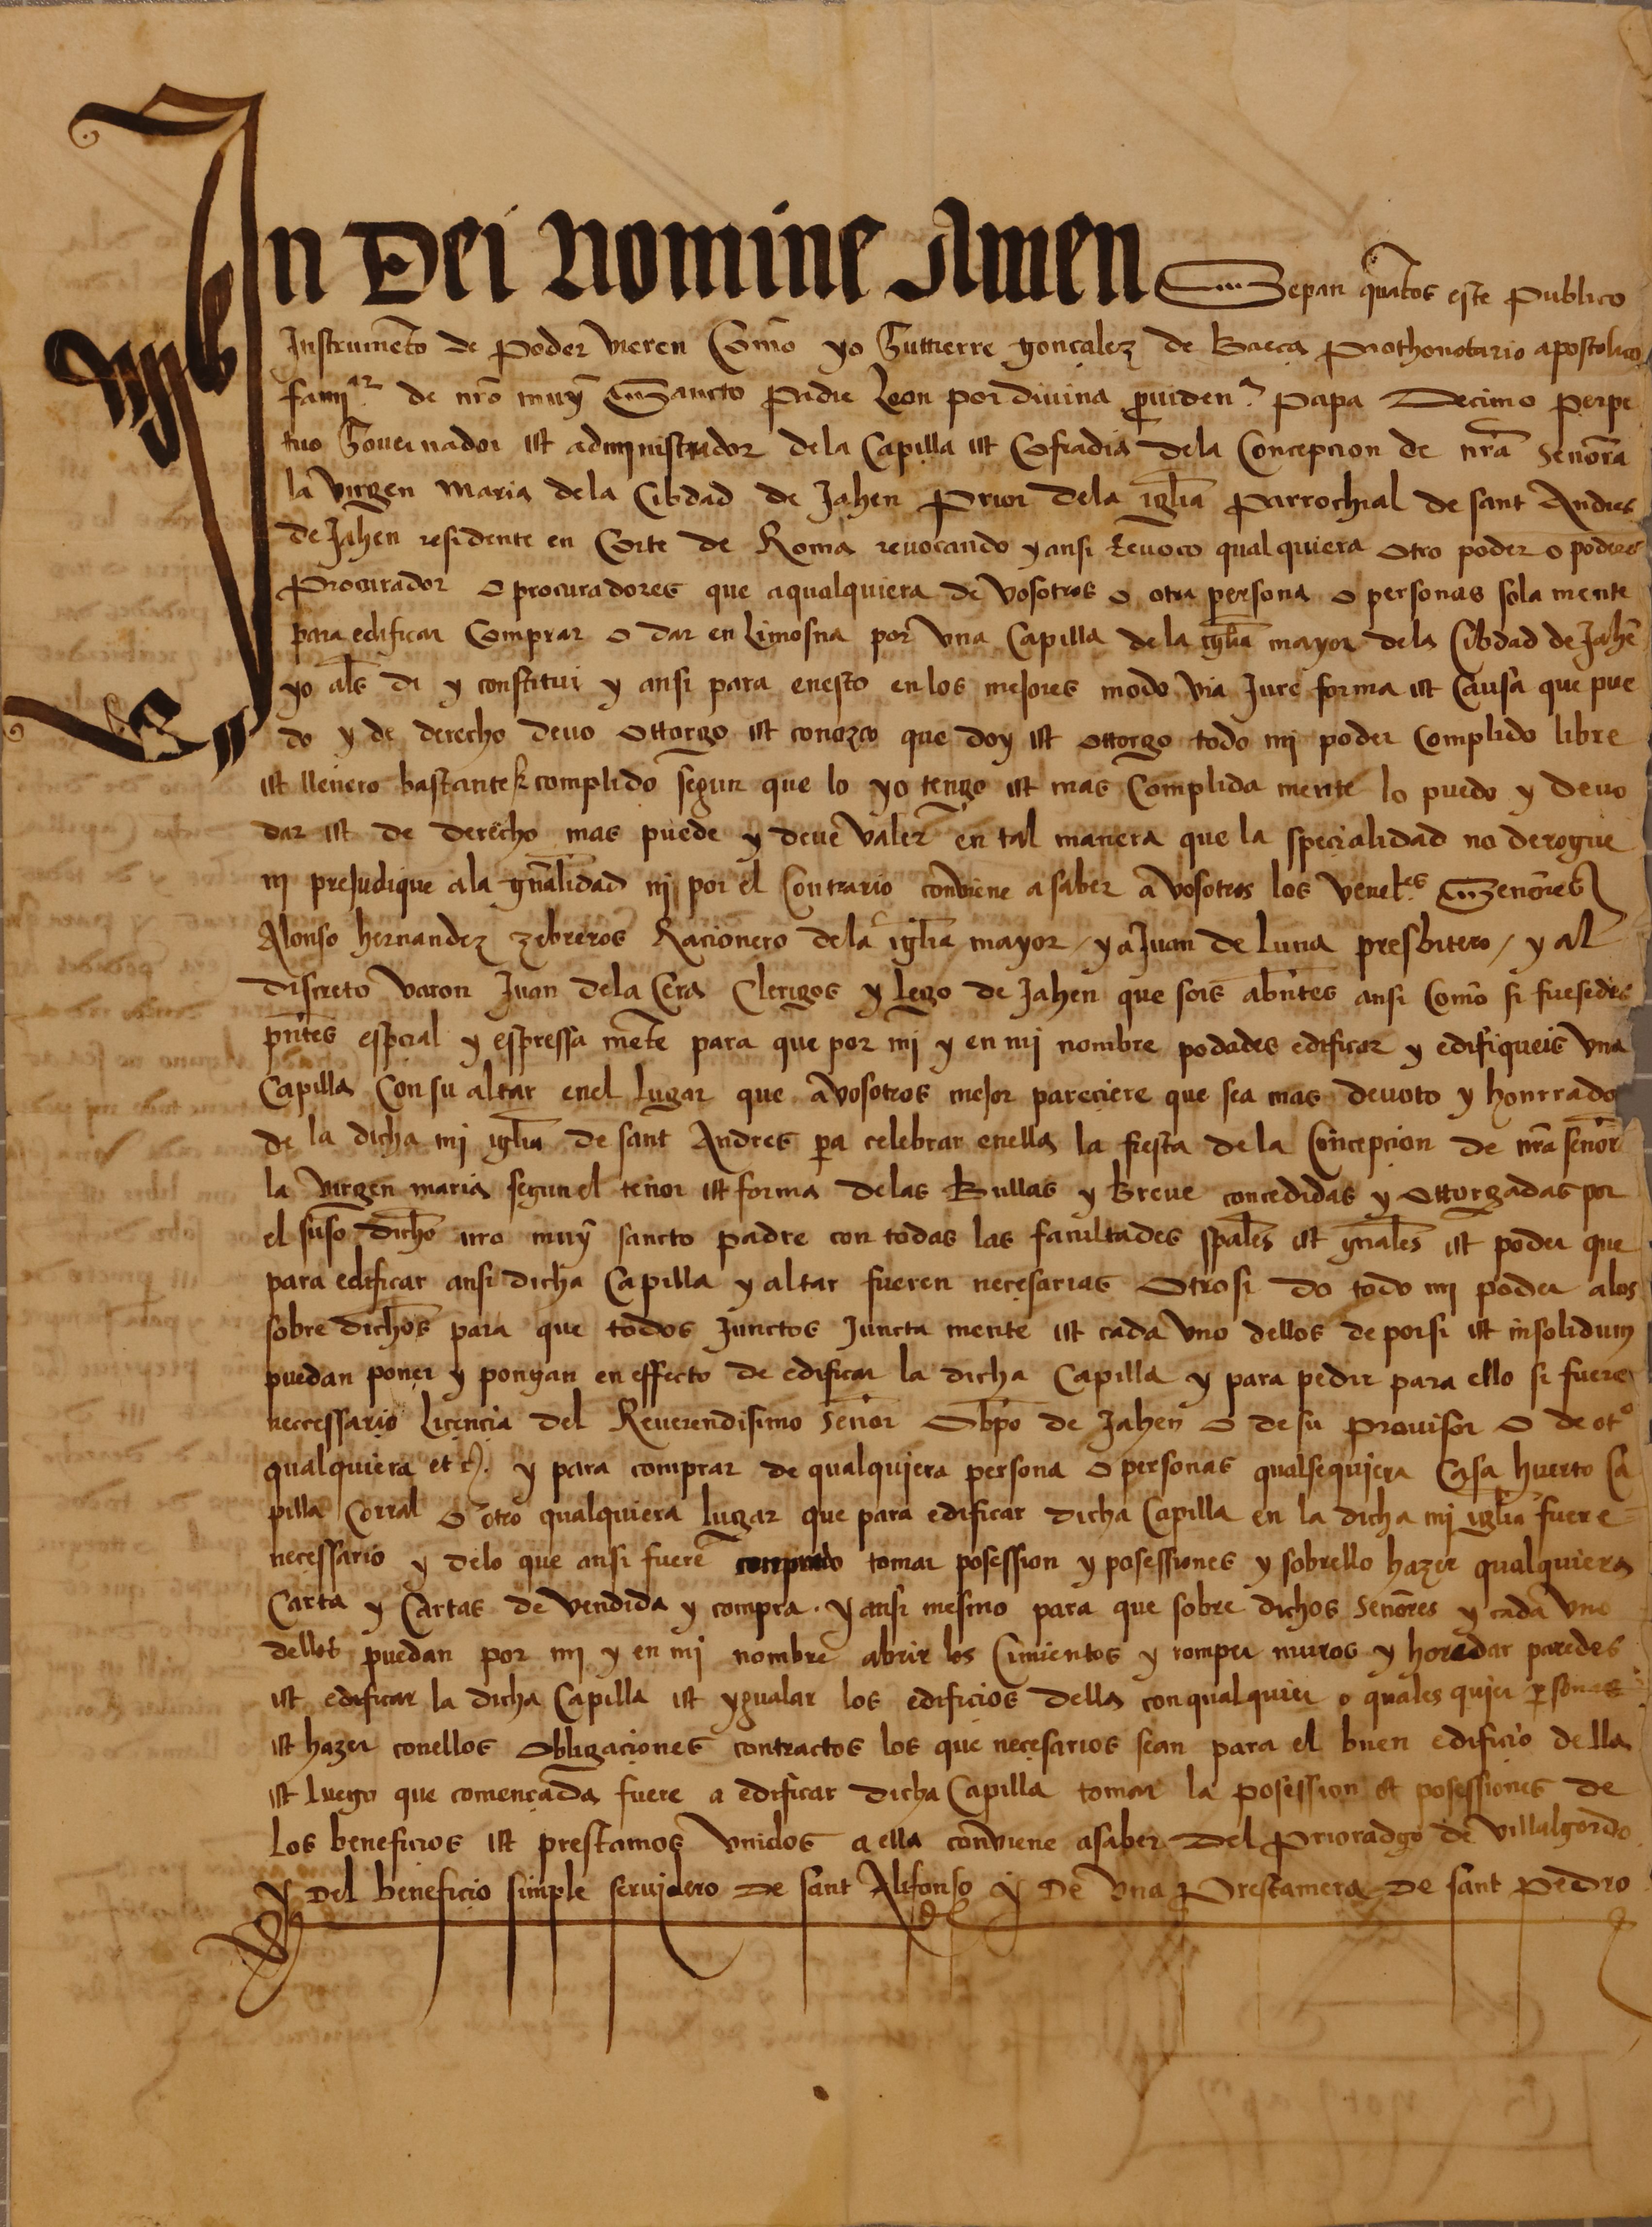 In Dei Nomine Amen Sepan quātos este Publico
Instrumēto de Poder vieren Cōmo yo Guttierre gonçalez de Baeça Prothonotario apostolico
fami^ar de nrō muy Sancto Padre Leon por divina pviden^a Papa Decimo Perpe
tuo Governador et administrador dela Capilla et Cofradia dela Concepcion de nrā Senōra
la Virgen Maria dela Cibdad de Jahen Prior dela iglīa Parrochial de sant Andres
de Jahen residente en Corte de Roma revocando y ansi Revoco qual quiera otro poder o poderes
Procurador o procuradores que aqualquiera de vosotros o otra persona o personas sola mente
para edificar Comprar o dar en Limosna por una Capilla de la iglīa mayor dela Cibdad de Jahē
yo als di y constitui y ansi para enesto enlos mejores modo via Jure forma et Causa que pue
do y de derecho devo ottorgo et conozco que doy et ottorgo todo mi poder Complido libre
et llenero bastante & complido segun que lo yo tengo et mas Complida mente lo puedo y devo
dar et de derecho mas puede y deve valer en tal manera que la specialidad no derogue
ni prejudique ala gnālidad ni por el Contrario conviene a saber a vosotros los venel^es Senōres
Alonso hernandez zebreros Racionero dela iglīa mayor / y a Juan de Luna presbitero / y al
discreto varon Juan dela Cera Clerigos y Lego de Jahen que sois abn̄tes ansi Cōmo si fuesedes
pn̄tes espcial y espressa mēte para que por mi y en mi nombre podades edificar y edifiqueis una
Capilla Con su altar enel lugar que a vosotros mejor pareciere que sea mas devoto y honrrado
de la dicha mi iglīa de sant Andres pa celebrar enella la fiesta dela Concepcion de nrā senōr
la virgen maria segun el tenor et forma delas Bullas y Breve concedidas y ottorgadas por
el suso dicho nro muy sancto padre con todas las facultades spāles et gnāles et poder que
para edificar ansi dicha Capilla y altar fueren necesarias Otrosi do todo mi poder alos
sobre dichos para que todos Junctos Juncta mente et cada uno dellos de porsi et insolidum
puedan poner y pongan en effecto de edificar la dicha Capilla y para pedir para ello si fuere
neccessario Licencia del Reverendisimo Senōr Obpō de Jahen o de su Provisor o de ot^o
qualquiera et c. y para comprar de qualquiera persona o personas qualsequiera Casa huerto Ca
pilla Corral o otro qualquiera lugar que para edificar dicha Capilla en la dicha mi iglīa fuere
necessario y delo que ansi fuere comprado tomar posession y posessiones y sobrello hazer qualquiera
Carta y Cartas de vendida y compra. y ansi mesmo para que sobre dichos Senōres y cada uno
dellos puedan por mi y en mi nombre abrir los Cimientos y romper muros y horadar paredes
et edificar la dicha Capilla et ygualar los edificios della con qualquier o quales quier psonas
et hazer conellos obligaciones contractos los que necesarios sean para el buen edificio della
et luego que començada fuere a edificar dicha Capilla tomar la posession et posessiones de
los beneficios et prestamos unidos a ella conviene asaber Del Prioradgo de villalgordo
y Del beneficio simple servidero De sant Alifonso y De una Prestamera De sant Pedro